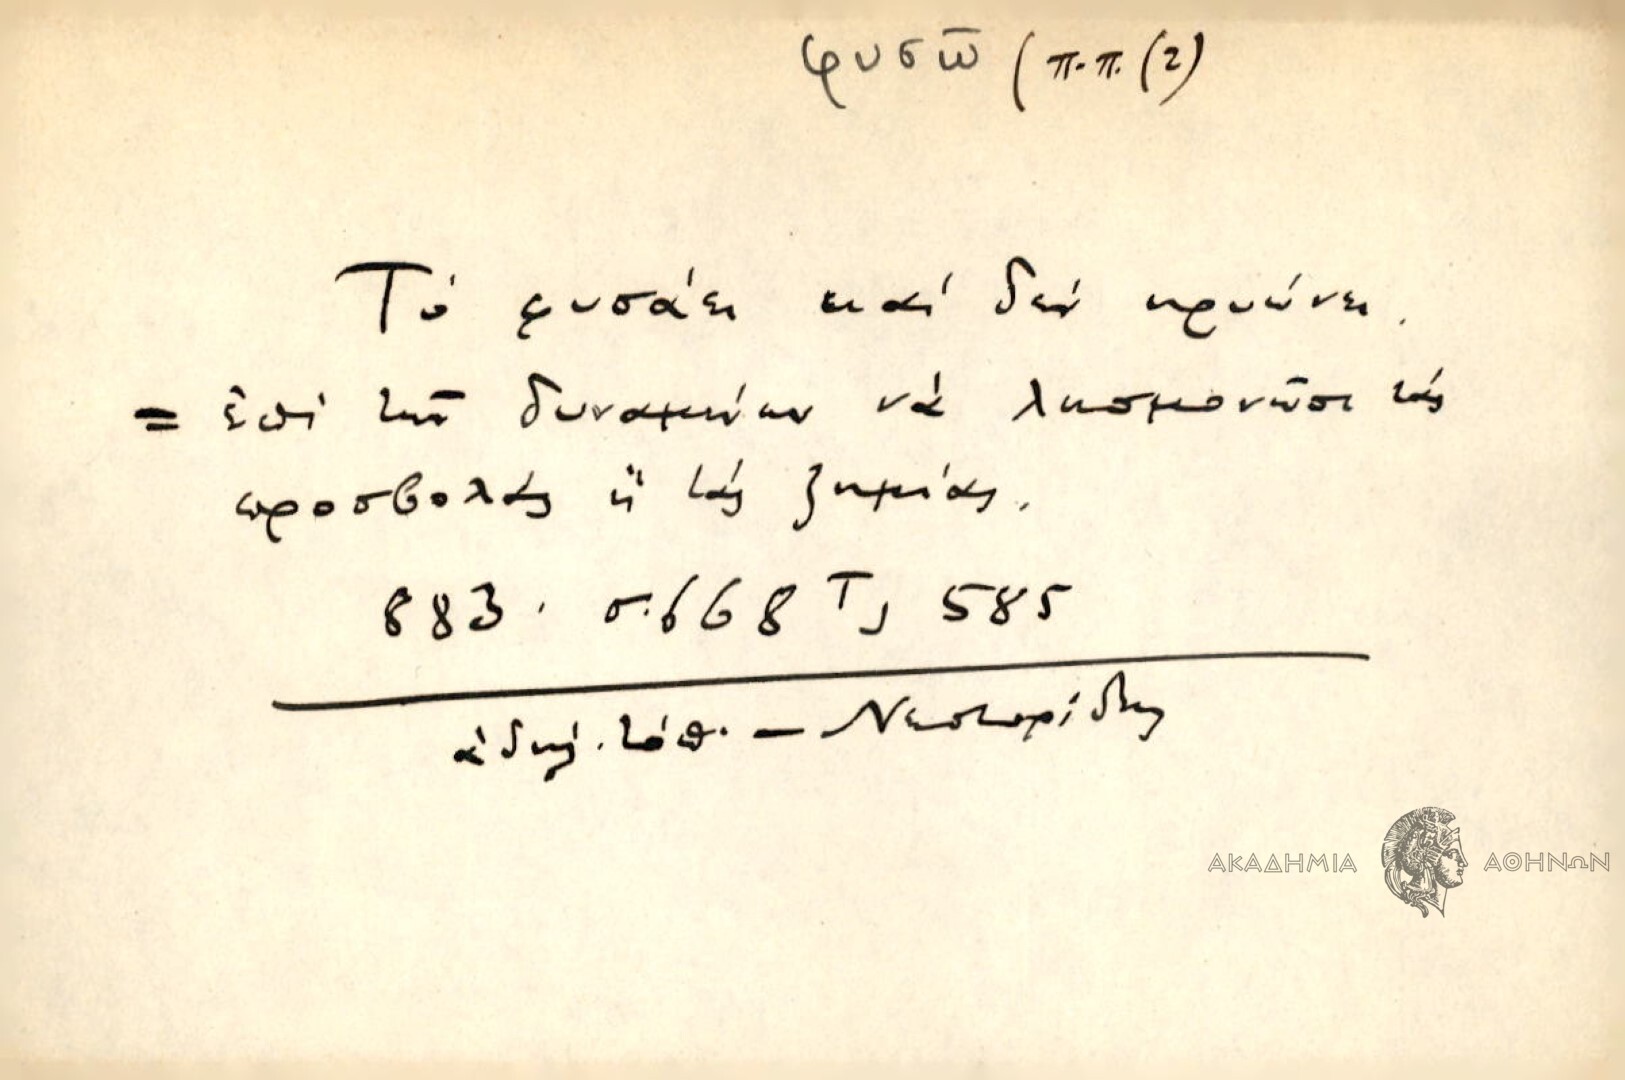 φυσῶ (π.π. (2)
Τό φυσάει καί δέν κρυώνει.
= ἐπί τῶν δυναμένων νά λησμονῶσι τάς
προσβολάς ἤ τάς ζημίας.
883. σ. 668 Τ) 585
ἀδήλ. τόπ. – Νεστορίδης
ΑΚΑΔΗΜΙΑ ΑΘΗΝΩΝ